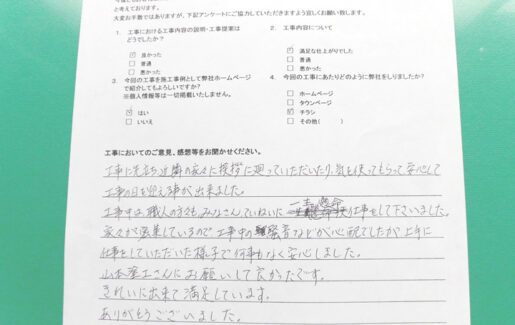 と考えております。
大変お手数ではありますが、下記アンケートにご協力していただきますよう宜しくお願い致します。
1. 工事における工事内容の説明・工事提案は
どうでしたか?
☑ 良かった
□ 普通
□ 悪かった
2. 工事内容について
☑ 満足な仕上がりでした
□ 普通
□ 悪かった
3. 今回の工事を施工事例として弊社ホームページ
で紹介してもよろしいですか?
※個人情報等は一切掲載いたしません。
☑ はい
□ いいえ
4. 今回の工事にあたりどのように弊社をしりましたか?
□ ホームページ
□ タウンページ
☑ チラシ
□ その他( )
工事においてのご意見、感想等をお聞かせください。
工事に先立ち近隣の家々に挨拶に廻っていただいたり、気を使ってもらって安心して
工事の日を迎える事が出来ました。
一生懸命
工事中は、職人の方々も、みなさんていねいに 工事をして下さいました。
家々が密集しているので、工事中の騒音などが心配でしたが上手に
仕事をしていただいた様子で何事もなく安心しました。
山本窯工さんにお願いして良かったです。
きれいに出来て満足しています。
ありがとうございました。